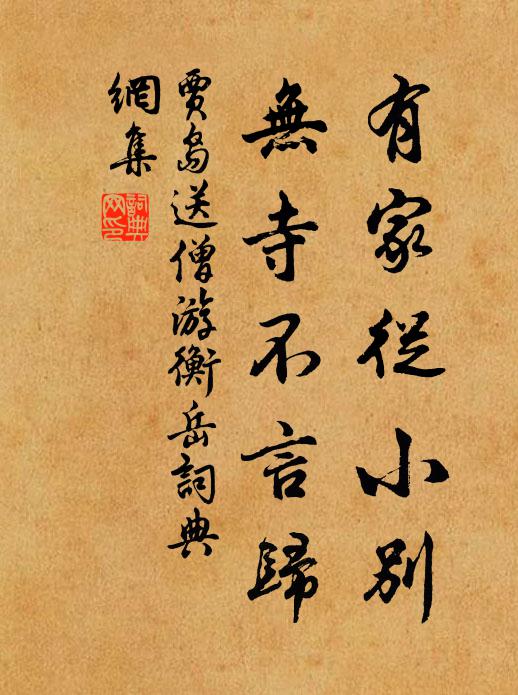 有家從小別
無寺不言歸
賈島送僧游衡岳詞典
網集
詞典
网印